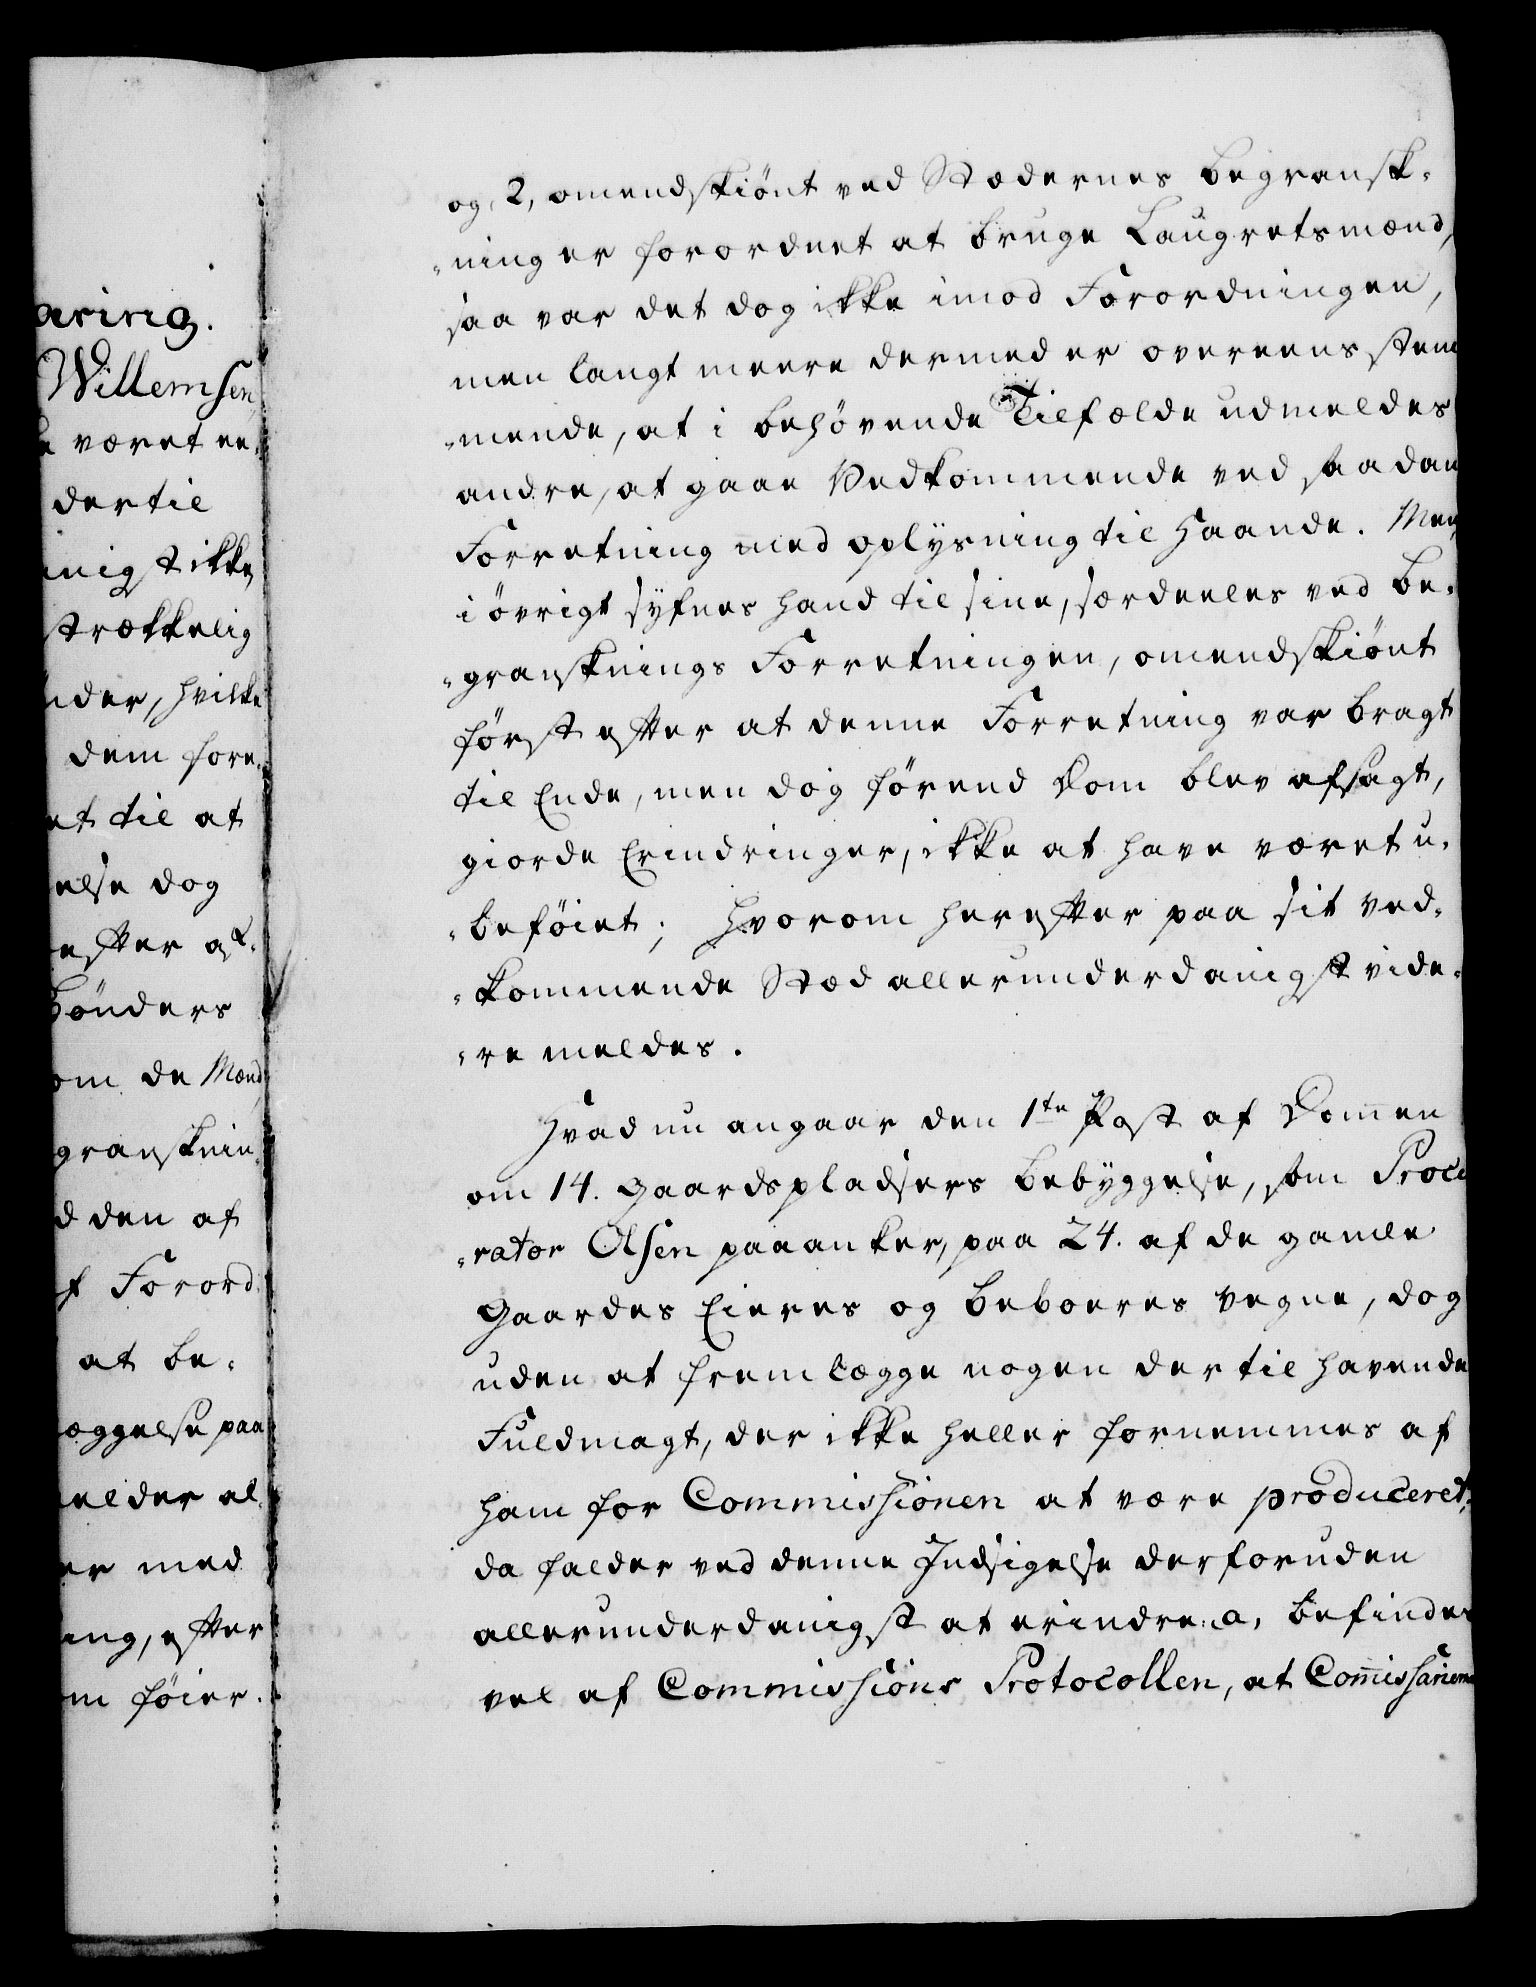 aring.
Willemsen,
været ee-
dertil
anigst ikke
strækkelig
nder, hvilke
dem fore-
et til at
else dog
efter at
Bønders
om de Mænd,
gransknin-
d den af
f Forord
at be-
æggelse paa
melder al
er med
ing, efter
m føier.
og, 2, omendskiønt ved Stædernes begransk-
-ning er forordnet at bruge Laugretsmænd,
saa var det dog ikke imod Forordningen,
men langt meere dermed er overeensstem
-mende, at i behøvende Tilfælde udmeldes
andre, at gaae Vedkommende ved saadan
Forretning med oplysning til Haande. Men,
i øvrigt synes hand til sine, særdeeles ved be-
-gransknings Forretningen, omendskiønt
først efter at denne Forretning var bragt
til Ende, men dog førend Dom blev afsagt,
giorde Erindringer, ikke at have været u-
-beføiet; hvorom herefter paa sit ved-
-kommende Stæd allerunderdanigst vide-
-re meldes.
Hvad nu angaar den 1te Post af Dom̄en
om 14. Gaardspladsers bebyggelse, som Procu
-rator Olsen paaanker, paa 24. af de gamle
Gaardes Eieres og beboeres vegne, dog
uden at fremlægge nogen dertil havende
Fuldmagt, der ikke heller fornemmes af
ham for Commissionen at være produceret;
da falder ved denne Indsigelse derforuden
allerunderdanigst at erindre: a, befindes
vel af Commissions Protocollen, at Com̄issarierne